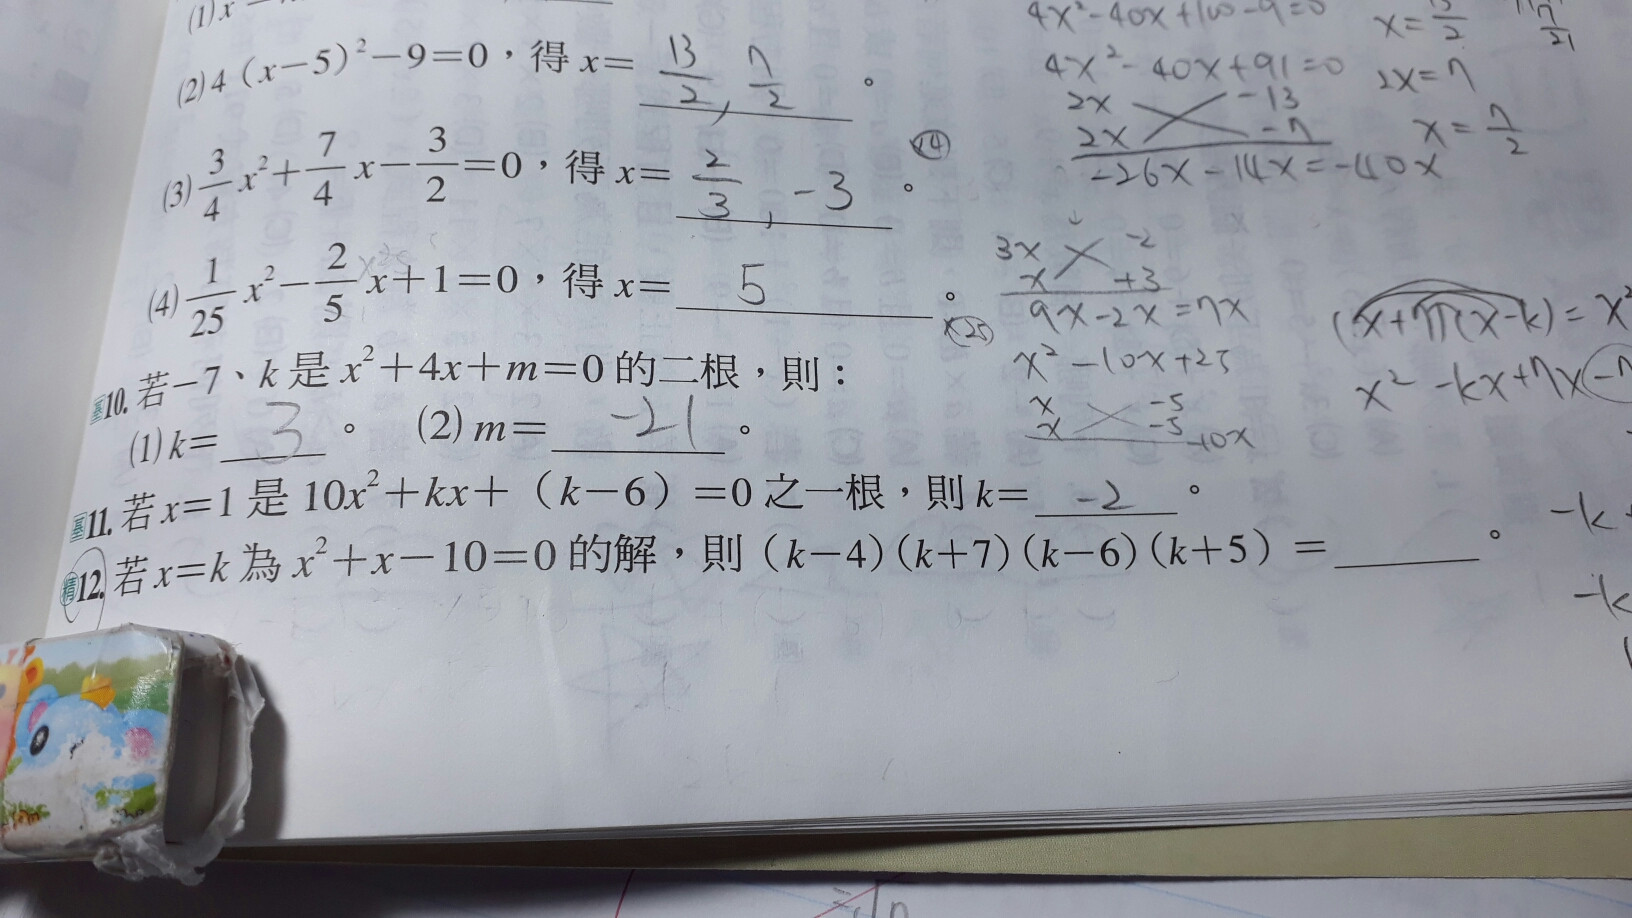 (1) x
(2) 4（x－5）²－9＝0，得 x＝ 13/2, 7/2 。
(3) 3/4 x²＋7/4 x－3/2＝0，得 x＝ 2/3, -3 。
(4) 1/25 x²－2/5 x＋1＝0，得 x＝ 5 。
基10. 若－7、k 是 x²＋4x＋m＝0 的二根，則：
(1) k＝ 3 。 (2) m＝ -21 。
基11. 若 x＝1 是 10x²＋kx＋（k－6）＝0 之一根，則 k＝ -2 。
精12. 若 x＝k 為 x²＋x－10＝0 的解，則（k－4）（k＋7）（k－6）（k＋5）＝ 。
4x²-40x+100-9=0
4x²-40x+91=0
2x -13
2x -7
-26x-14x=-40x
x=13/2
2x=7
x=7/2
x4
3x -2
x +3
9x-2x=7x
x25
x²-10x+25
x -5
x -5
-10x
(x+7)(x-k)=x²
x²-kx+7x-7
-k
-k